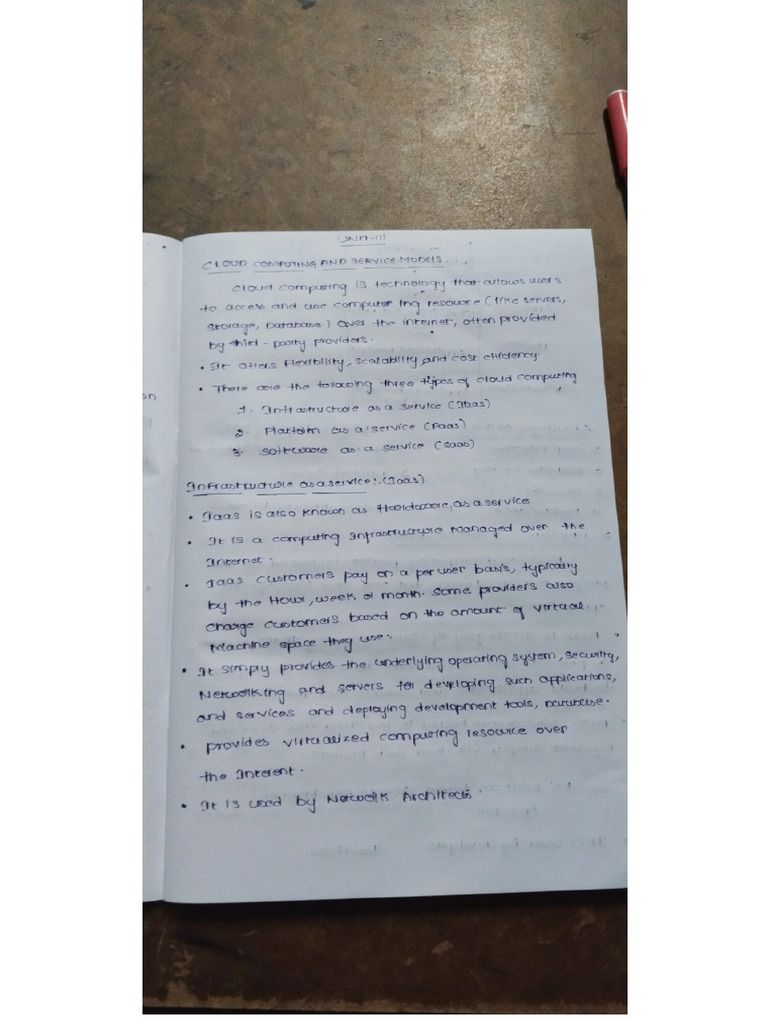 UNIT-III
CLOUD COMPUTING AND SERVICE MODELS
Cloud computing is technology that allows users
to access and use computer ing resource (like servers,
Storage, Database) over the internet, often provided
by third-party providers.
• It offers Flexibility, Scalability and cost efficiency
• There are the following three types of cloud computing
1. Infrastructure as a service (Iaas)
2. Platform as a service (Paas)
3. Software as a service (Saas)
Infrastructure as a service:. (Iaas)
• Iaas is also known as Hardware as a service
• It is a computing Infrastructure Managed over the
Internet.
• Iaas customers pay on a per user basis, typically
by the Hour, week or month. Some providers also
charge customers based on the amount of virtual
Machine space they use.
• It simply provides the underlying operating system, security,
Networking and servers for developing such applications,
and services and deploying development tools, Database.
• provides virtualized computing resource over
the Interent.
• It is used by Network Architects.
on